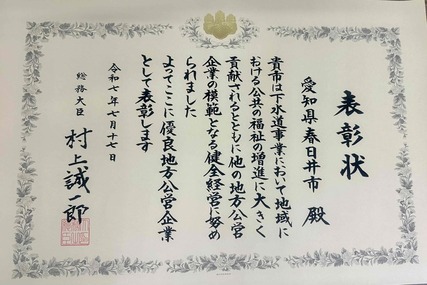 表彰状
愛知県春日井市 殿
貴市は下水道事業において地域に
おける公共の福祉の増進に大きく
貢献されるとともに他の地方公営
企業の模範となる健全経営に努め
られました
よってここに優良地方公営企業
として表彰します
令和七年七月十七日
総務大臣 村上誠一郎